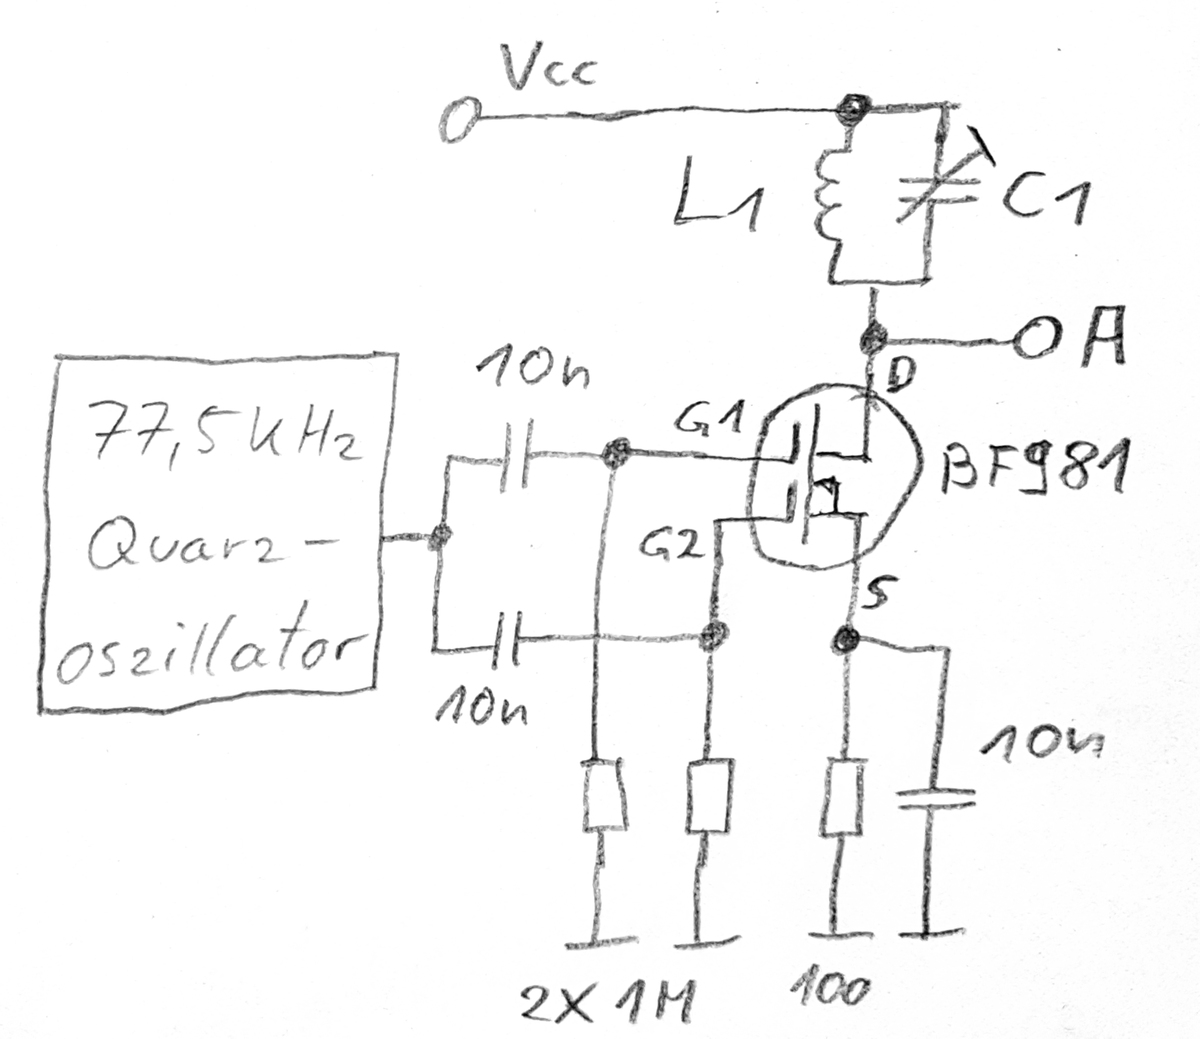 Vcc
L1
C1
A
10n
D
G1
BF981
77,5kHz
Quarz-
oszillator
G2
S
10n
10n
2X1M
100